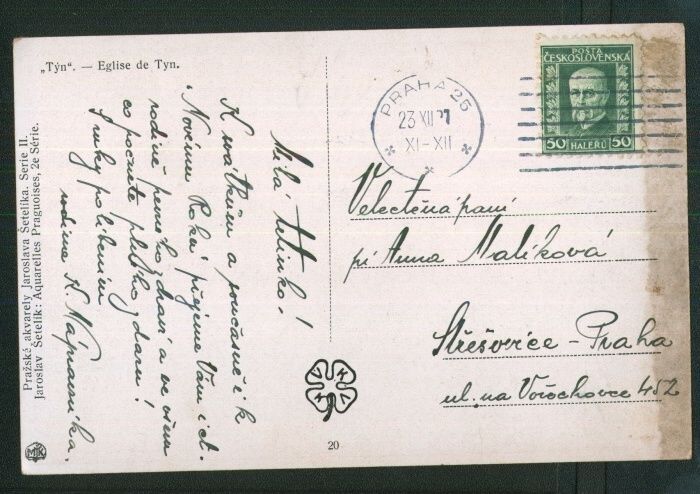 „Týn“. — Eglise de Tyn.
Pražské akvarely Jaroslava Šetelíka. Serie II.
Jaroslav Šetelík: Aquarelles Praguoises, 2e Série.
Milá
K svátkům a současně i k
Novému Roku přejeme Vám i ct.
rodině pevného zdraví a ve všem
co počnete plného zdaru!
S ruky políbením
rodina K. Nápravníka.
20
PRAHA 25
23 XII 27
XI-XII
POŠTA
ČESKOSLOVENSKÁ
50 HALÉŘŮ 50
Velectěná paní
pí Anna Malíková
Střešovice - Praha
ul. na Ořechovce 452